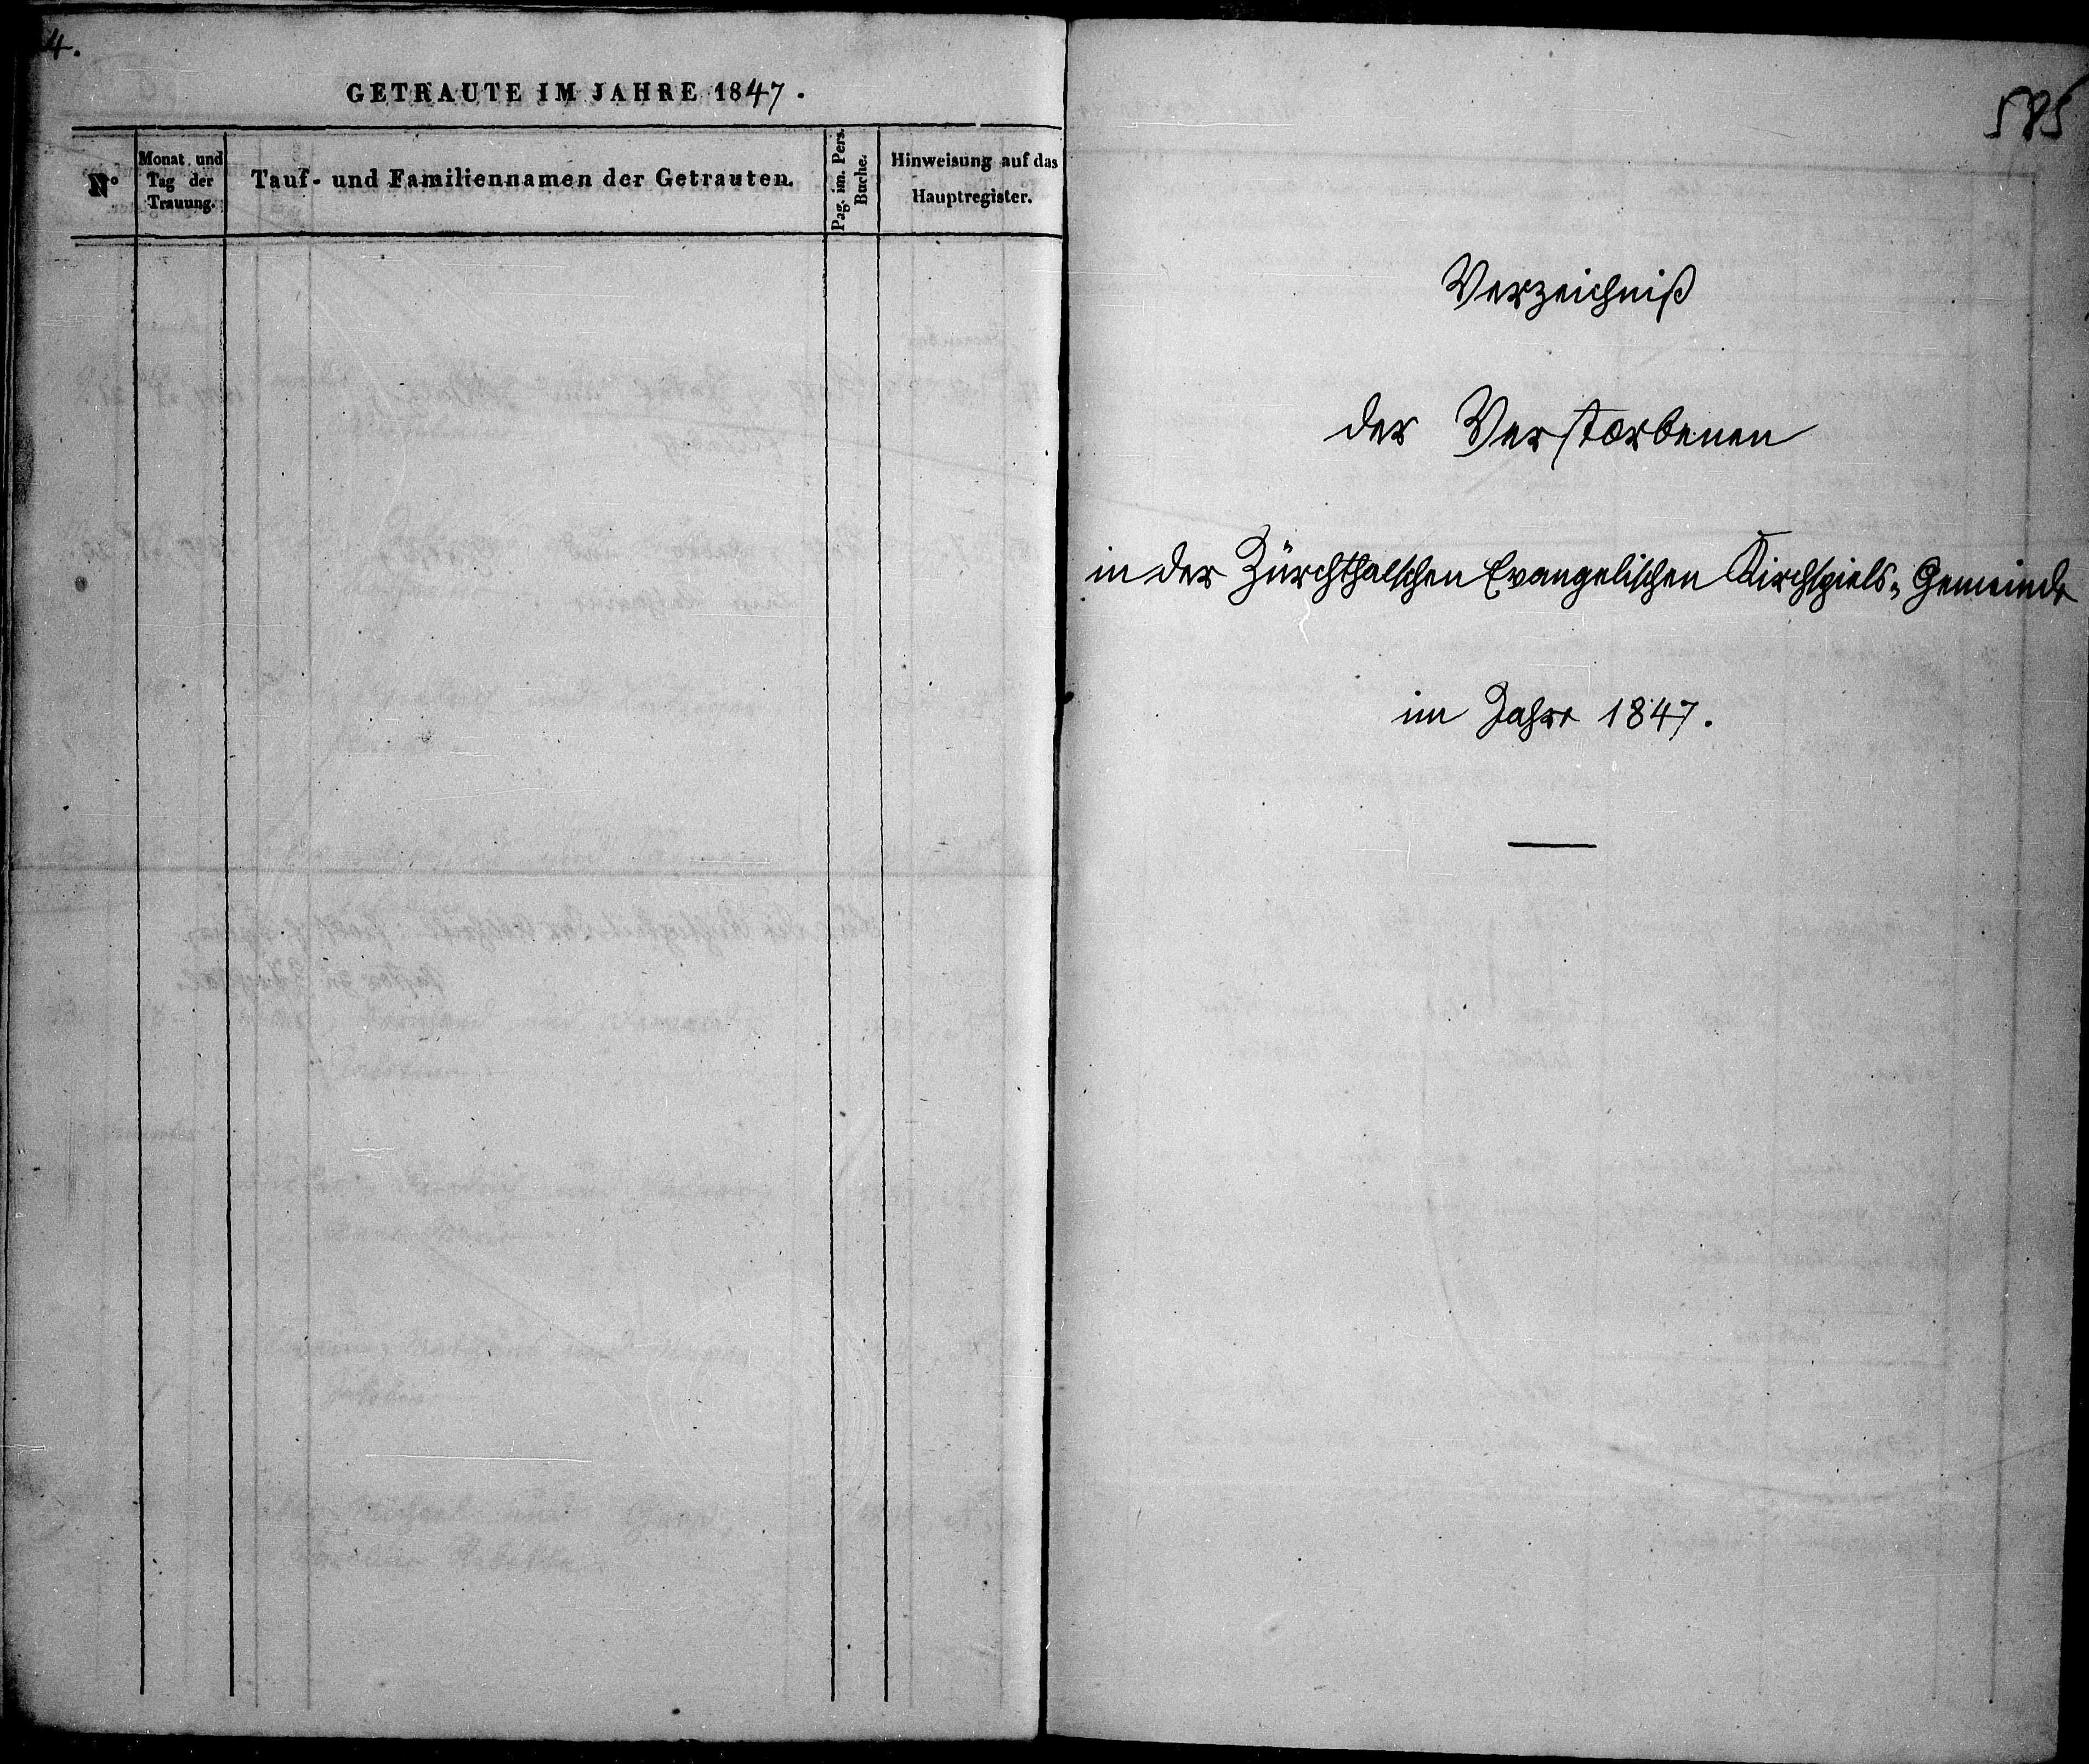 4.
GETRAUTE IM JAHRE 1847.
N°
Monat und
Tag der
Trauung.
Tauf- und Familiennamen der Getrauten.
Pag. im. Pers.
Buche.
Hinweisung auf das
Hauptregister.
585
Verzeichniß
der Verstorbenen
in der Zürchthalschen Evangelischen Kirchspiels-Gemeinde
im Jahre 1847.